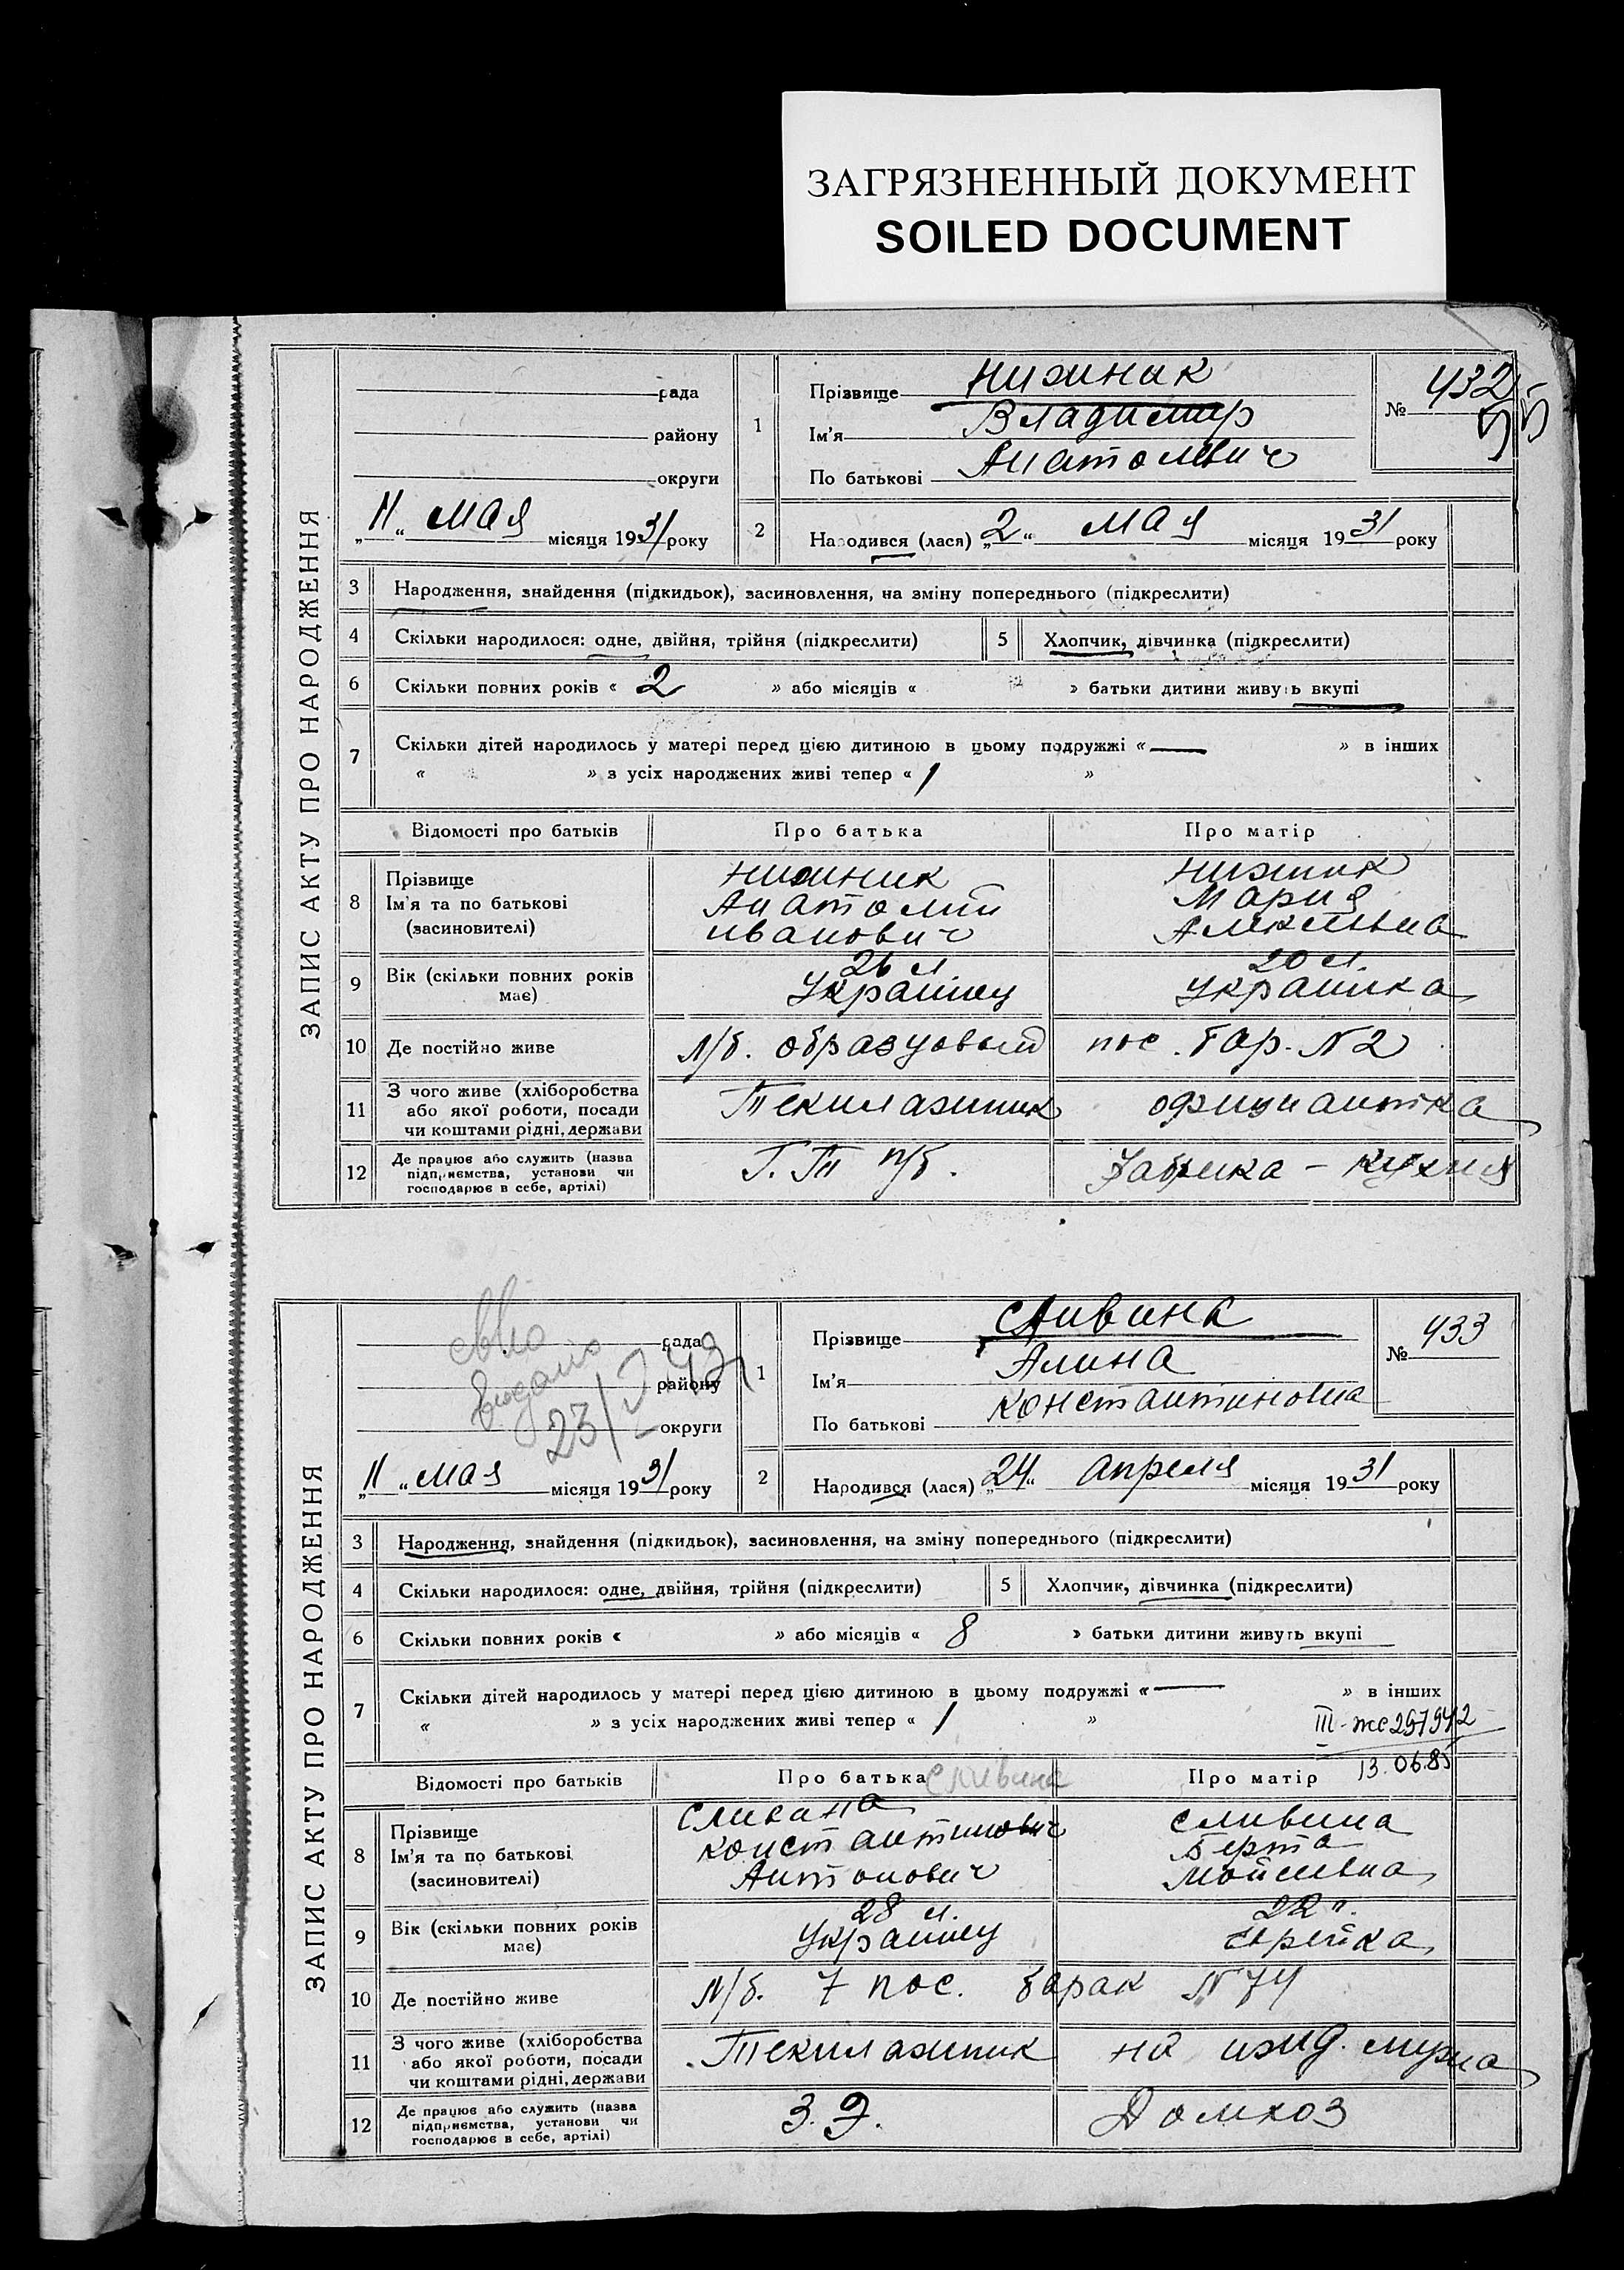 ЗАГРЯЗНЕННЫЙ ДОКУМЕНТ
SOILED DOCUMENT
ЗАПИС АКТУ ПРО НАРОДЖЕННЯ
рада
району
округи
„11“ мая місяця 1931 року
1
Прізвище Нижник
Ім’я Владимир
По батькові Анатолевич
№ 432
55
2
Народився (лася) „2“ мая місяця 1931 року
3 Народження, знайдення (підкидьок), засиновлення, на зміну попереднього (підкреслити)
4 Скільки народилося: одне, двійня, трійня (підкреслити)
5 Хлопчик, дівчинка (підкреслити)
6 Скільки повних років « 2 » або місяців « » батьки дитини живуть вкупі
7 Скільки дітей народилось у матері перед цією дитиною в цьому подружжі « — » в інших
« » з усіх народжених живі тепер « 1 »
Відомості про батьків Про батька Про матір
8 Прізвище
Ім’я та по батькові
(засиновителі)
Нижник
Анатолий
Иванович
Нижник
Мария
9 Вік (скільки повних років
має)
26 л.
Украинец
20 л.
Украинка
10 Де постійно живе л/б. образцовый пос. бар. N 2
11 З чого живе (хліборобства
або якої роботи, посади
чи коштами рідні, держави
официантка
12 Де працює або служить (назва
підприємства, установи чи
господарює в себе, артілі)
Фабрика – кухня
ЗАПИС АКТУ ПРО НАРОДЖЕННЯ
рада
району
округи
23/
„11“ мая місяця 1931 року
1
Прізвище Сливина
Ім’я Алина
По батькові Константиновна
№ 433
2
Народився (лася) „24“ апреля місяця 1931 року
3 Народження, знайдення (підкидьок), засиновлення, на зміну попереднього (підкреслити)
4 Скільки народилося: одне, двійня, трійня (підкреслити)
5 Хлопчик, дівчинка (підкреслити)
6 Скільки повних років « » або місяців « 8 » батьки дитини живуть вкупі
7 Скільки дітей народилось у матері перед цією дитиною в цьому подружжі « — » в інших
« » з усіх народжених живі тепер « 1 »
III-же 297942
13.06.85
Відомості про батьків Про батька Сливина Про матір
8 Прізвище
Ім’я та по батькові
(засиновителі)
Антонович
Сливина
Берта
Мойсеевна
9 Вік (скільки повних років
має)
28 л.
Украинец
22 л.
Еврейка
10 Де постійно живе л/б. 7 пос. барак N 74
11 З чого живе (хліборобства
або якої роботи, посади
чи коштами рідні, держави
на ижд. мужа
12 Де працює або служить (назва
підприємства, установи чи
господарює в себе, артілі)
З. Э.
Домхоз